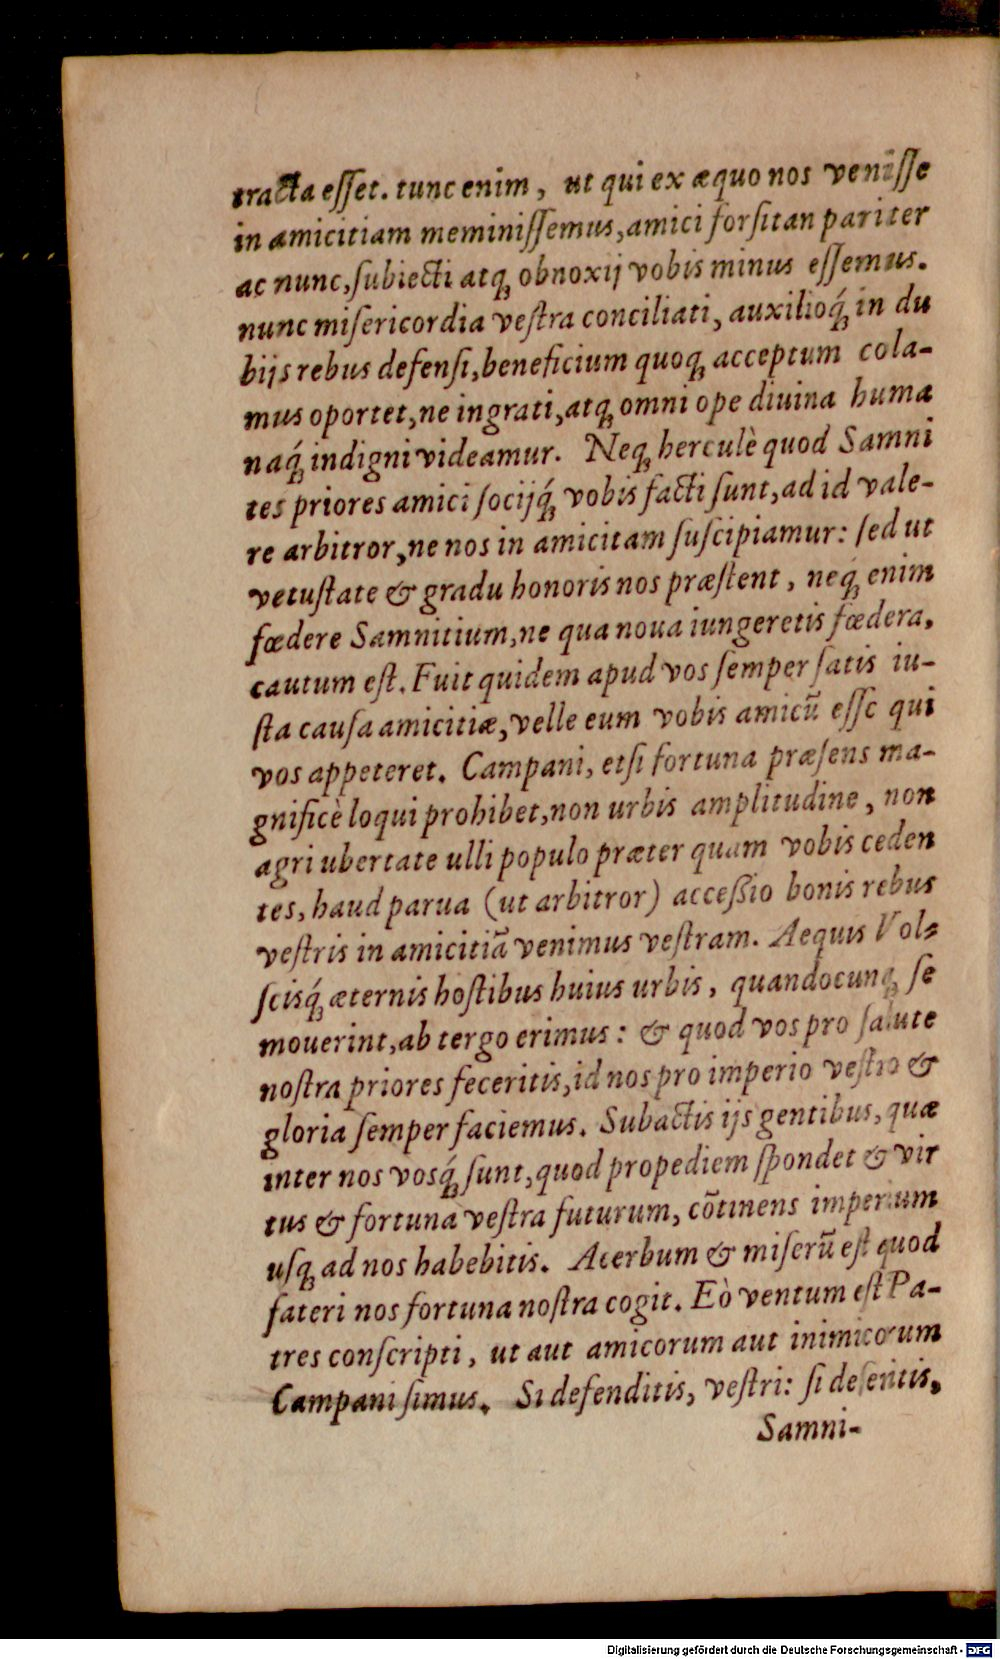 tracta eſſet. tunc enim, ut qui ex æquo nos veniſſe
in amicitiam meminiſſemus, amici forſitan pariter
ac nunc, ſubiecti atqꝫ obnoxij vobis minus eſſemus.
nunc miſericordia veſtra conciliati, auxilioq́ꝫ in du
bijs rebus defenſi, beneficium quoqꝫ acceptum cola-
mus oportet, ne ingrati, atqꝫ omni ope diuina huma
naq́ꝫ indigni videamur. Neqꝫ herculè quod Samni
tes priores amici ſocijq́ꝫ vobis facti ſunt, ad id vale-
re arbitror, ne nos in amicitam ſuſcipiamur: ſed ut
vetuſtate & gradu honoris nos præſtent, neq́ꝫ enim
fœdere Samnitium, ne qua noua iungeretis fœdera,
cautum eſt. Fuit quidem apud vos ſemper ſatis iu-
ſta cauſa amicitiæ, velle eum vobis amicũ eſſe qui
vos appeteret. Campani, etſi fortuna præſens ma-
gnificè loqui prohibet, non urbis amplitudine, non
agri ubertate ulli populo præter quam vobis ceden
tes, haud parua (ut arbitror) acceſsio bonis rebus
veſtris in amicitiã venimus veſtram. Aequis Vol-
ſcisq́ꝫ æternis hoſtibus huius urbis, quandocunqꝫ ſe
mouerint, ab tergo erimus: & quod vos pro ſalute
noſtra priores feceritis, id nos pro imperio veſtro &
gloria ſemper faciemus. Subactis ijs gentibus, quæ
inter nos vosq́ꝫ ſunt, quod propediem ſpondet & vir
tus & fortuna veſtra futurum, cõtinens imperium
uſqꝫ ad nos habebitis. Acerbum & miſerũ eſt quod
fateri nos fortuna noſtra cogit. Eò ventum eſt Pa-
tres conſcripti, ut aut amicorum aut inimicorum
Campani ſimus. Si defenditis, veſtri: ſi deſeritis,
Samni-
Digitalisierung gefördert durch die Deutsche Forschungsgemeinschaft - DFG